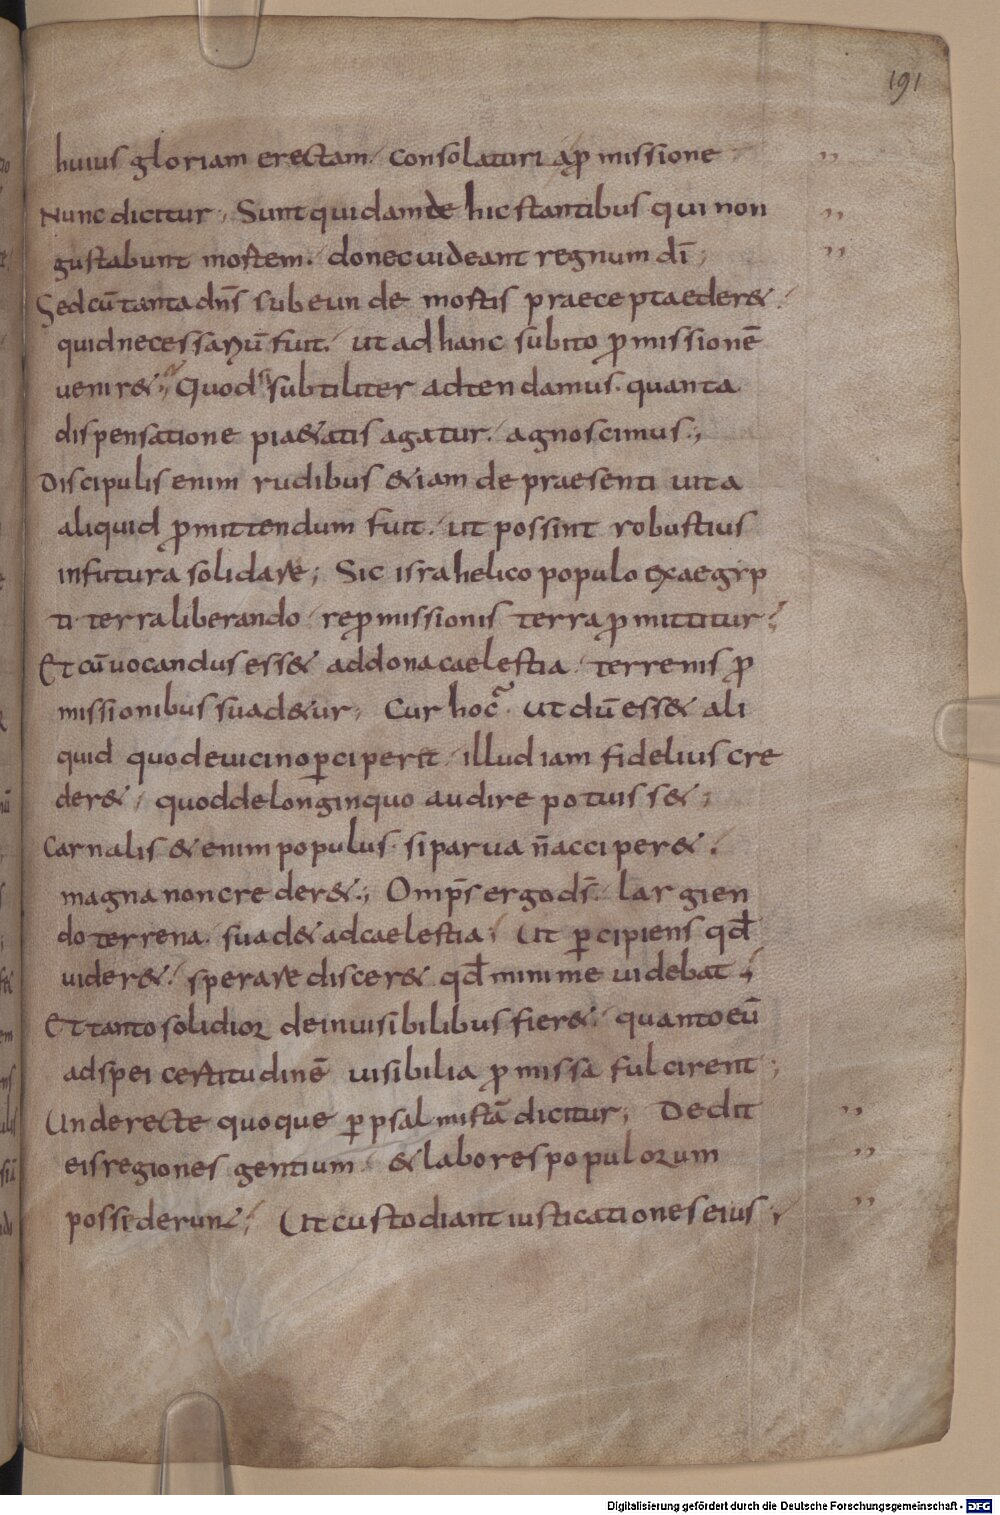 191
huius gloriam erectam. consolaturi a ꝓmissione
Nunc dicitur; Sunt quidam de hic stantibus qui non
gustabunt mortem. donec uideant regnum dī;
Sed cū tanta dn̄s subeunde mortis praecepta ederet.
quid necessariū fuit. ut ad hanc subito ꝓmissionē
ueniret; Quod si subtiliter adtendamus. quanta
dispensatione piaetatis agatur. agnoscimus;
Discipulis enim rudibus & iam de praesenti uita
aliquid ꝓmittendum fuit. ut possint robustius
in futura solidare; Sic israhelico populo ex aegyp
ti terra liberando reꝓmissionis terra ꝓmittitur;
Et cū uocandus esset ad dona caelestia. terrenis ꝓ
missionibus suadetur; Cur hoc? ut dū esset ali
quid quod e uicino ꝑciperet. illud iam fidelius cre
deret, quod de longinquo audire potuisset;
Carnalis etenim populus. si parua n̄ acciperet.
magna non crederet; Omp̄s ergo ds̄. largien
do terrena. suadet ad caelestia; Ut ꝑcipiens qđ
uideret. sperare disceret qđ minime uidebat;
Et tanto solidior de inuisibilibus fieret. quanto eū
ad spei certitudinē uisibilia ꝓmissa fulcirent;
Unde recte quoque ꝑ psalmistā dicitur; Dedit
eis regiones gentium. & labores populorum
possederunt; Ut custodiant iusticationes eius;
Digitalisierung gefördert durch die Deutsche Forschungsgemeinschaft - DFG